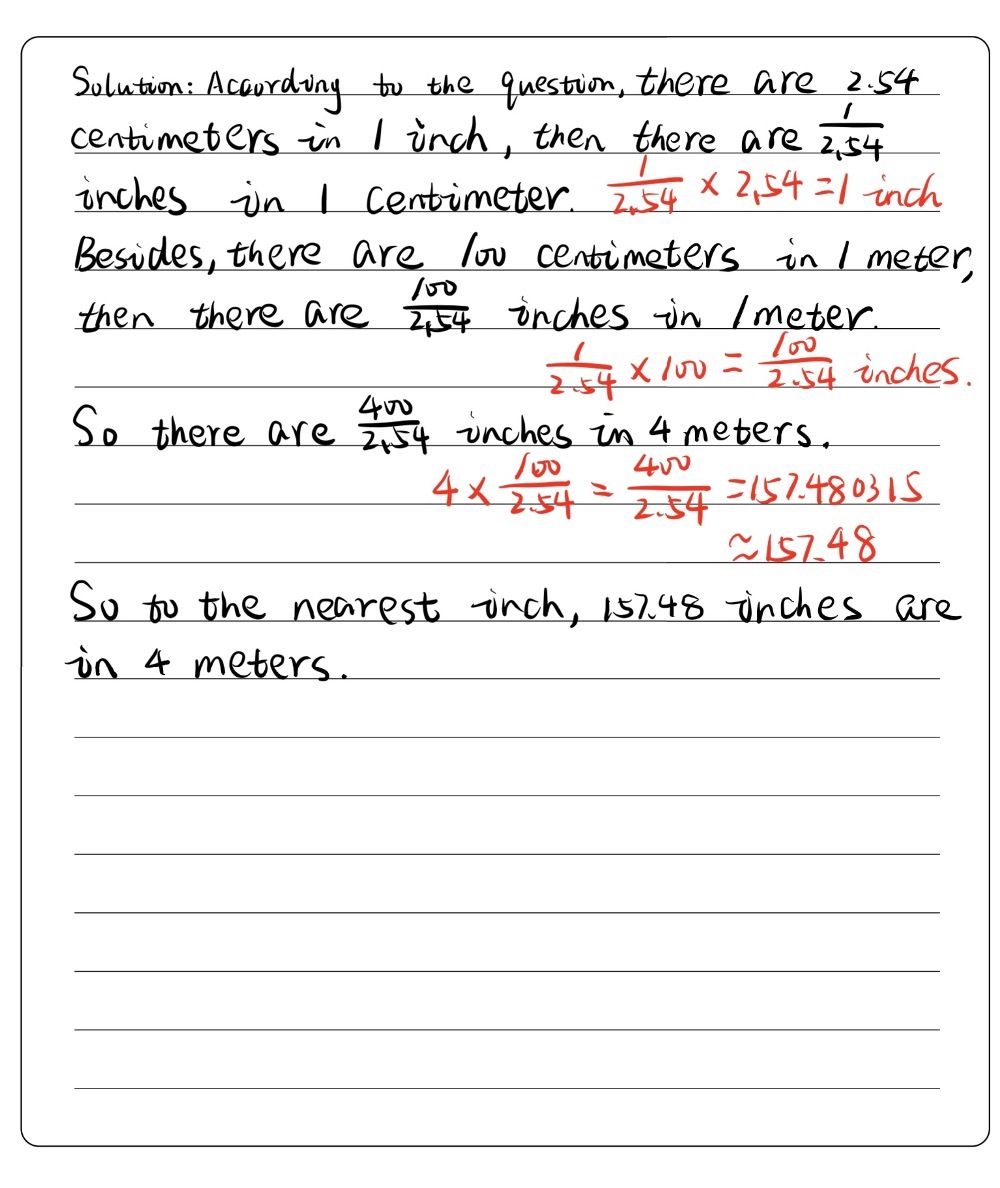 Solution: According to the question, there are 2.54
centimeters in 1 inch, then there are 1/2.54
inches in 1 centimeter. 1/2.54 × 2.54 = 1 inch
Besides, there are 100 centimeters in 1 meter,
then there are 100/2.54 inches in 1 meter.
1/2.54 × 100 = 100/2.54 inches.
So there are 400/2.54 inches in 4 meters.
4 × 100/2.54 = 400/2.54 = 157.480315
≈ 157.48
So to the nearest inch, 157.48 inches are
in 4 meters.